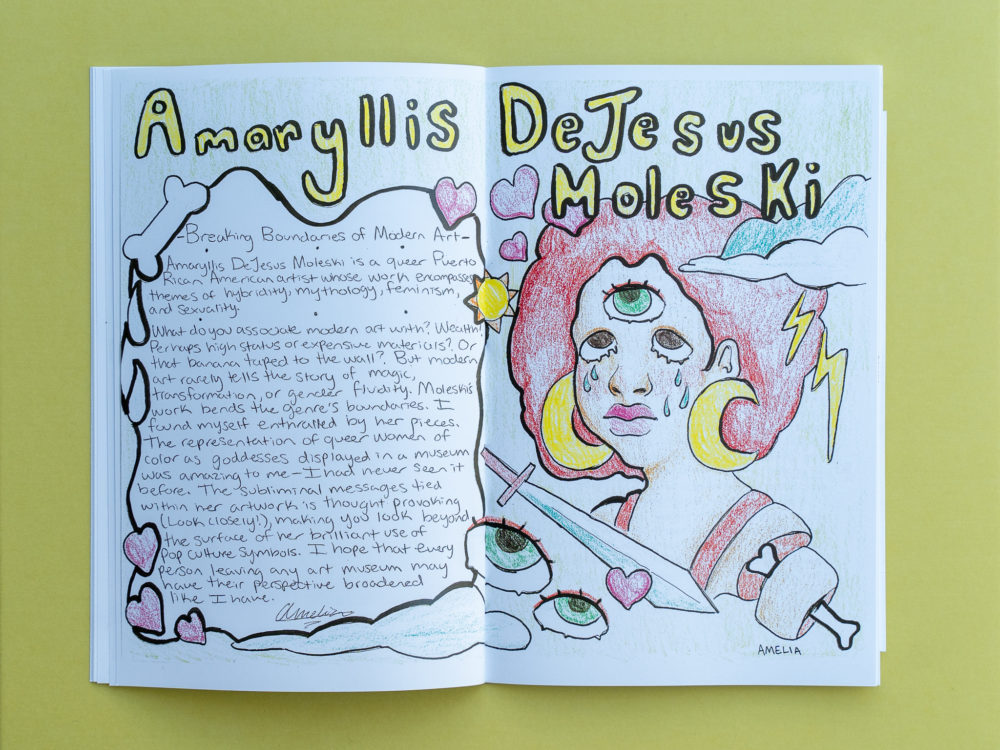 Amaryllis DeJesus
Moleski
-Breaking Boundaries of Modern Art-
Amaryllis DeJesus Moleski is a queer Puerto
Rican American artist whose work encompasses
themes of hybridity, mythology, feminism,
and sexuality.
What do you associate modern art with? Wealth?
Perhaps high status or expensive materials? Or
that banana taped to the wall? But modern
art rarely tells the story of magic,
transformation, or gender fluidity. Moleski's
work bends the genre's boundaries. I
found myself enthralled by her pieces.
The representation of queer women of
color as goddesses displayed in a museum
was amazing to me - I had never seen it
before. The subliminal messages tied
within her artwork is thought provoking
(Look closely!), making you look beyond
the surface of her brilliant use of
Pop culture symbols. I hope that every
person leaving any art museum may
have their perspective broadened
like I have.
Amelia
AMELIA